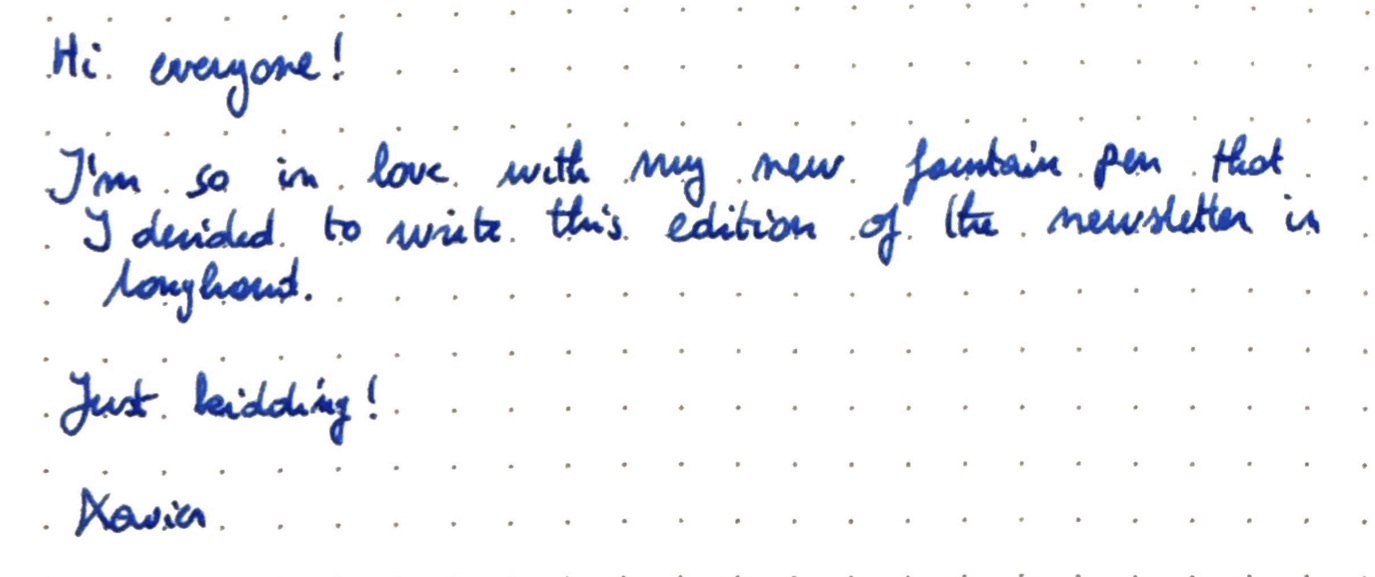 Hi everyone!
I'm so in love with my new fountain pen that
I decided to write this edition of the newsletter in
longhand.
Just kidding!
Xavier